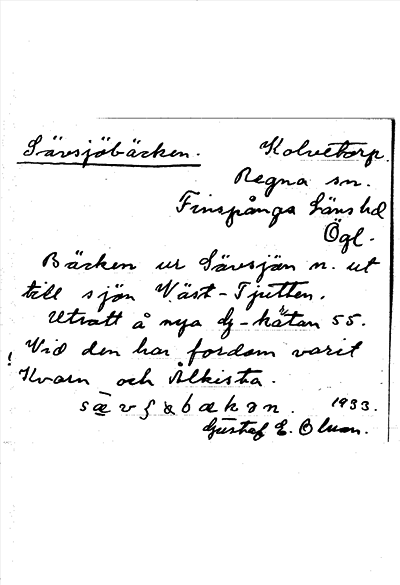 Sävsjöbäcken. Kolvetorp.
Regna sn.
Finspånga läns hd
Ögl.
Bäcken ur Sävsjön n. ut
till sjön Wäst-Tjutten.
Utsatt å nya G-kartan 55.
! Vid den har fordom varit
Kvarn och Ålkista.
1933.
Gustaf E. Olsson.